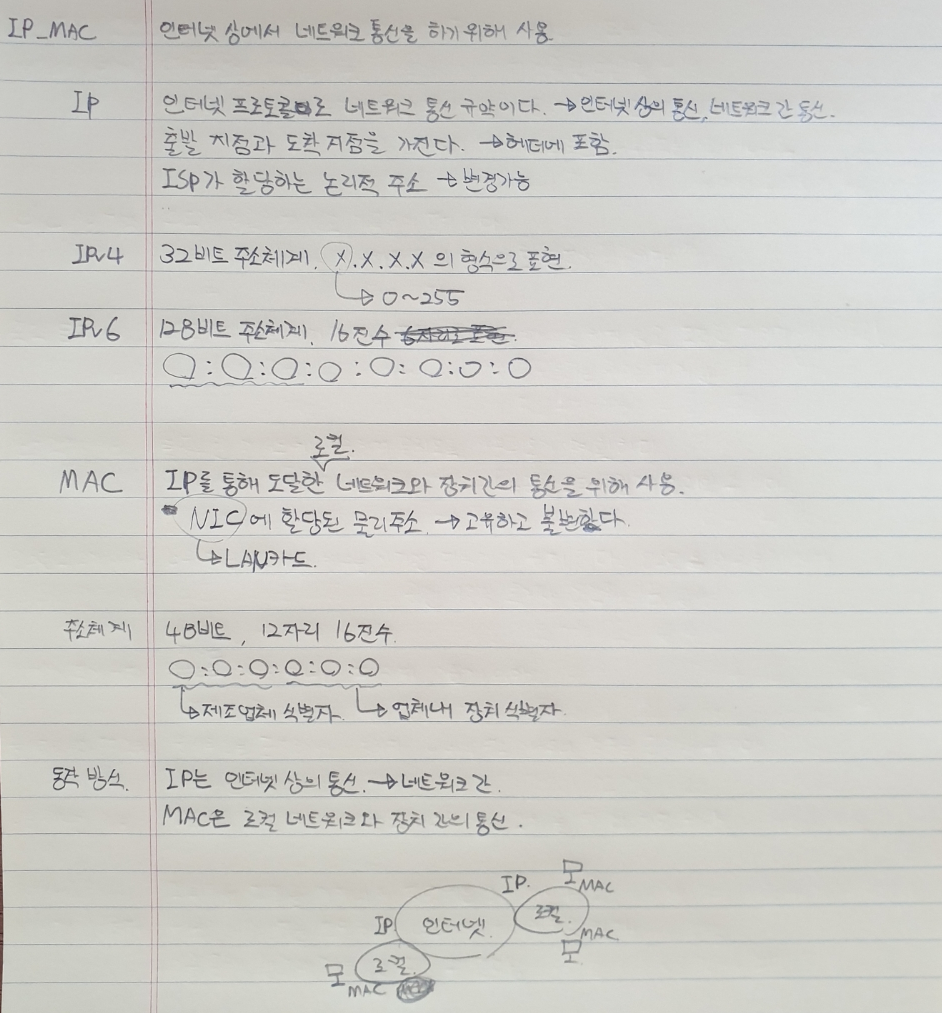 IP_MAC 인터넷 상에서 네트워크 통신을 하기 위해 사용
IP 인터넷 프로토콜로 네트워크 통신 규약이다. →인터넷 상의 통신, 네트워크 간 통신.
출발 지점과 도착 지점을 가진다. →헤더에 포함.
ISP가 할당하는 논리적 주소 →변경가능
IPv4 32비트 주소체계. X.X.X.X 의 형식으로 표현.
→0~255
IPv6 128비트 주소체계. 16진수
○:○:○:○:○:○:○:○
로컬.
MAC IP를 통해 도달한 네트워크와 장치간의 통신을 위해 사용.
NIC에 할당된 물리주소. →고유하고 불변하다.
→LAN카드.
주소체계 48비트, 12자리 16진수.
○:○:○:○:○:○
→제조업체 식별자. →업체내 장치 식별자.
동작 방식. IP는 인터넷 상의 통신. →네트워크 간.
MAC은 로컬 네트워크와 장치 간의 통신.
IP. MAC
IP 인터넷. 로컬. MAC
로컬.
MAC